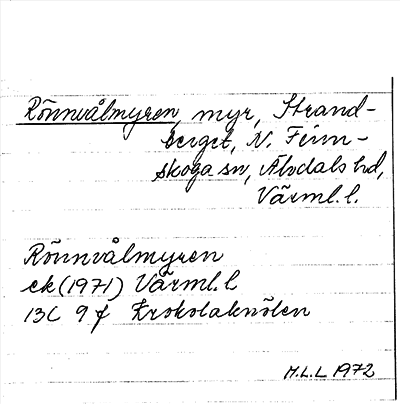 Rönnvålmyren, myr, Strand-
berget, N. Finn-
skoga sn, Älvdals hd,
Värml. l.
Rönnvålmyren
ek (1971) Värml. l
13C 9f Krokolaknölen
M.L.L 1972